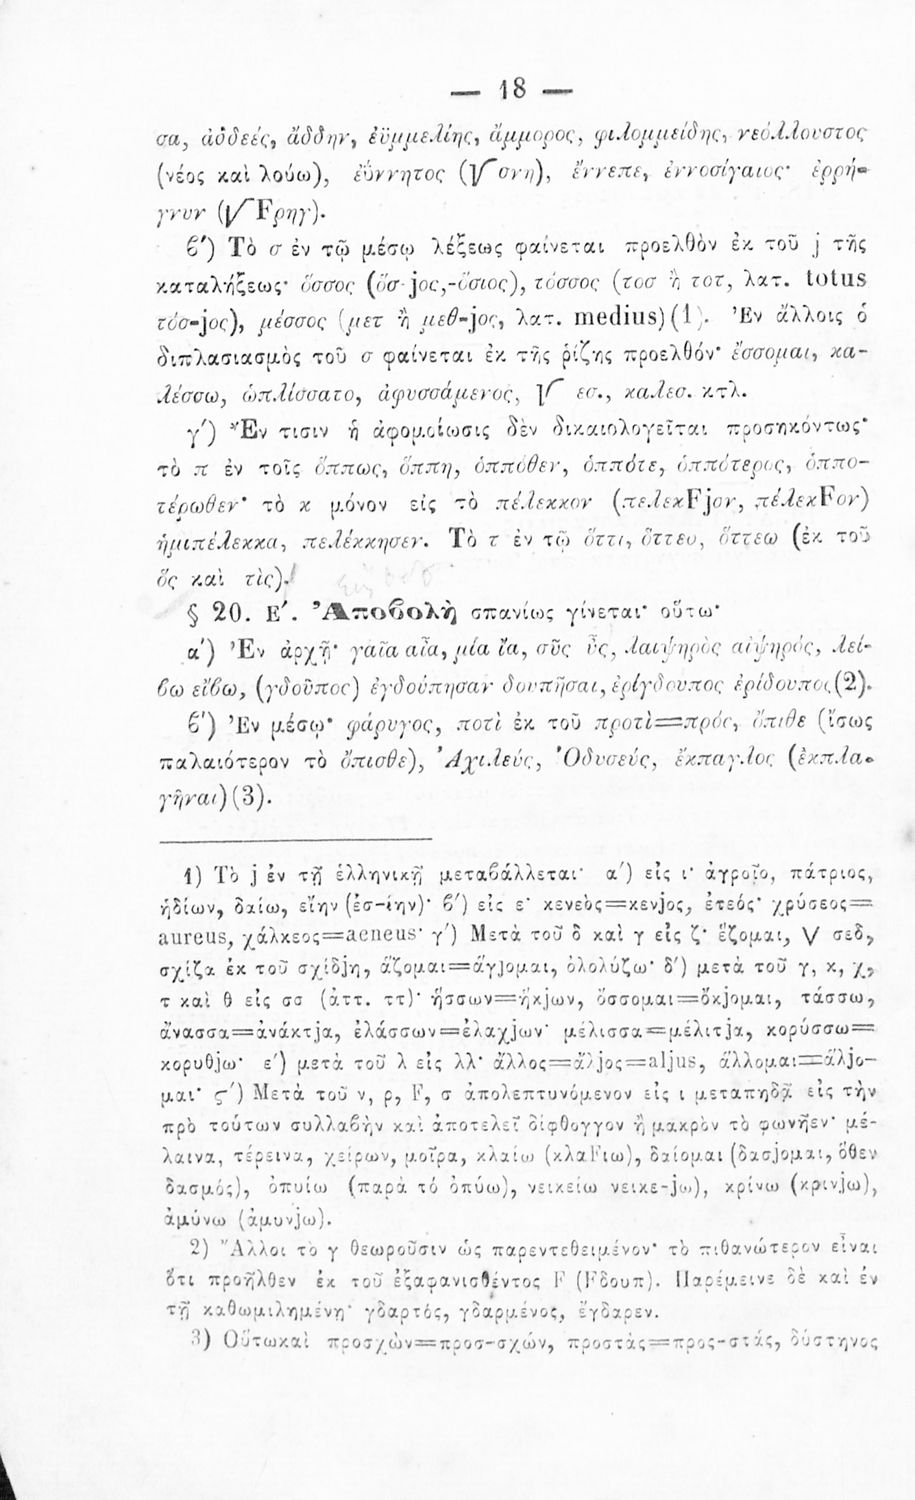 — 18 —
σα, ἀδδεές, ἄδδην, ἐϋμμελίης, ἄμμορος, φιλομμείδης, νεόλλουστος
(νέος καὶ λούω), ἐΰννητος (√σνη), ἔννεπε, ἐννοσίγαιος· ἐρρή-
γνυν (√Fρηγ).
ϐ′) Τὸ σ ἐν τῷ μέσῳ λέξεως φαίνεται προελθὸν ἐκ τοῦ j τῆς
καταλήξεως· ὅσσος (ὅσ-jος,-ὅσιος), τόσσος (τοσ ἢ τοτ, λατ. totus
τόσ-jος), μέσσος (μετ ἢ μεθ-jος, λατ. medius)(1). Ἐν ἄλλοις ὁ
διπλασιασμὸς τοῦ σ φαίνεται ἐκ τῆς ῥίζης προελθόν· ἔσσομαι, κα-
λέσσω, ὡπλίσσατο, ἀφυσσάμενος, √ εσ., καλεσ. κτλ.
γ′) Ἔν τισιν ἡ ἀφομοίωσις δὲν δικαιολογεῖται προσηκόντως·
τὸ π ἐν τοῖς ὅππως, ὅππη, ὁππόθεν, ὁππότε, ὁππότερος, ὁππο-
τέρωθεν· τὸ κ μόνον εἰς τὸ πέλεκκον (πελεκFjον, πέλεκFον)
ἡμιπέλεκκα, πελέκκησεν. Τὸ τ ἐν τῷ ὅττι, ὅττευ, ὅττεω (ἐκ τοῦ
ὅς καὶ τὶς).
§ 20. Ε′. Ἀποϐολὴ σπανίως γίνεται· οὕτω·
α′) Ἐν ἀρχῇ· γαῖα αἶα, μία ἴα, σῦς ὗς, λαιψηρὸς αἰψηρός, λεί-
ϐω εἴϐω, (γδοῦπος) ἐγδούπησαν δουπῆσαι, ἐρίγδουπος ἐρίδουπος(2).
ϐ′) Ἐν μέσῳ· φάρυγος, ποτὶ ἐκ τοῦ προτὶ=πρός, ὄπιθε (ἴσως
παλαιότερον τὸ ὄπισθε), Ἀχιλεύς, Ὀδυσεύς, ἔκπαγλος (ἐκπλα-
γῆναι)(3).
1) Τὸ j ἐν τῇ ἑλληνικῇ μεταϐάλλεται· α′) εἰς ι· ἀγροῖο, πάτριος,
ἡδίων, δαίω, εἴην (ἐσ-ίην)· ϐ′) εἰς ε· κενεὸς=κενjος, ἐτεός· χρύσεος=
aureus, χάλκεος=aeneus· γ′) Μετὰ τοῦ δ καὶ γ εἰς ζ· ἕζομαι, √ σεδ,
σχίζα ἐκ τοῦ σχίδjη, ἅζομαι=ἅγjομαι, ὀλολύζω· δ′) μετὰ τοῦ γ, κ, χ,
τ καὶ θ εἰς σσ (ἀττ. ττ)· ἥσσων=ἥκjων, ὄσσομαι=ὄκjομαι, τάσσω,
ἄνασσα=ἀνάκτjα, ἐλάσσων=ἐλαχjων· μέλισσα=μέλιτjα, κορύσσω=
κορυθjω· ε′) μετὰ τοῦ λ εἰς λλ· ἄλλος=ἄλjος=aljus, ἅλλομαι=ἅλjο-
μαι· ϛ′) Μετὰ τοῦ ν, ρ, F, σ ἀπολεπτυνόμενον εἰς ι μεταπηδᾷ εἰς τὴν
πρὸ τούτων συλλαϐὴν καὶ ἀποτελεῖ δίφθογγον ἢ μακρὸν τὸ φωνῆεν· μέ-
λαινα, τέρεινα, χείρων, μοῖρα, κλαίω (κλαFιω), δαίομαι (δασjομαι, ὅθεν
δασμός), ὀπυίω (παρὰ τό ὀπύω), νεικείω νεικε-jω), κρίνω (κρινjω),
ἀμύνω (ἀμυνjω).
2) Ἄλλοι τὸ γ θεωροῦσιν ὡς παρεντεθειμένον· τὸ πιθανώτερον εἶναι
ὅτι προῆλθεν ἐκ τοῦ ἐξαφανισθέντος F (Fδουπ). Παρέμεινε δὲ καὶ ἐν
τῇ καθωμιλημένῃ· γδαρτός, γδαρμένος, ἔγδαρεν.
3) Οὕτωκαὶ προσχὼν=προσ-σχών, προστὰς=προς-στάς, δύστηνος